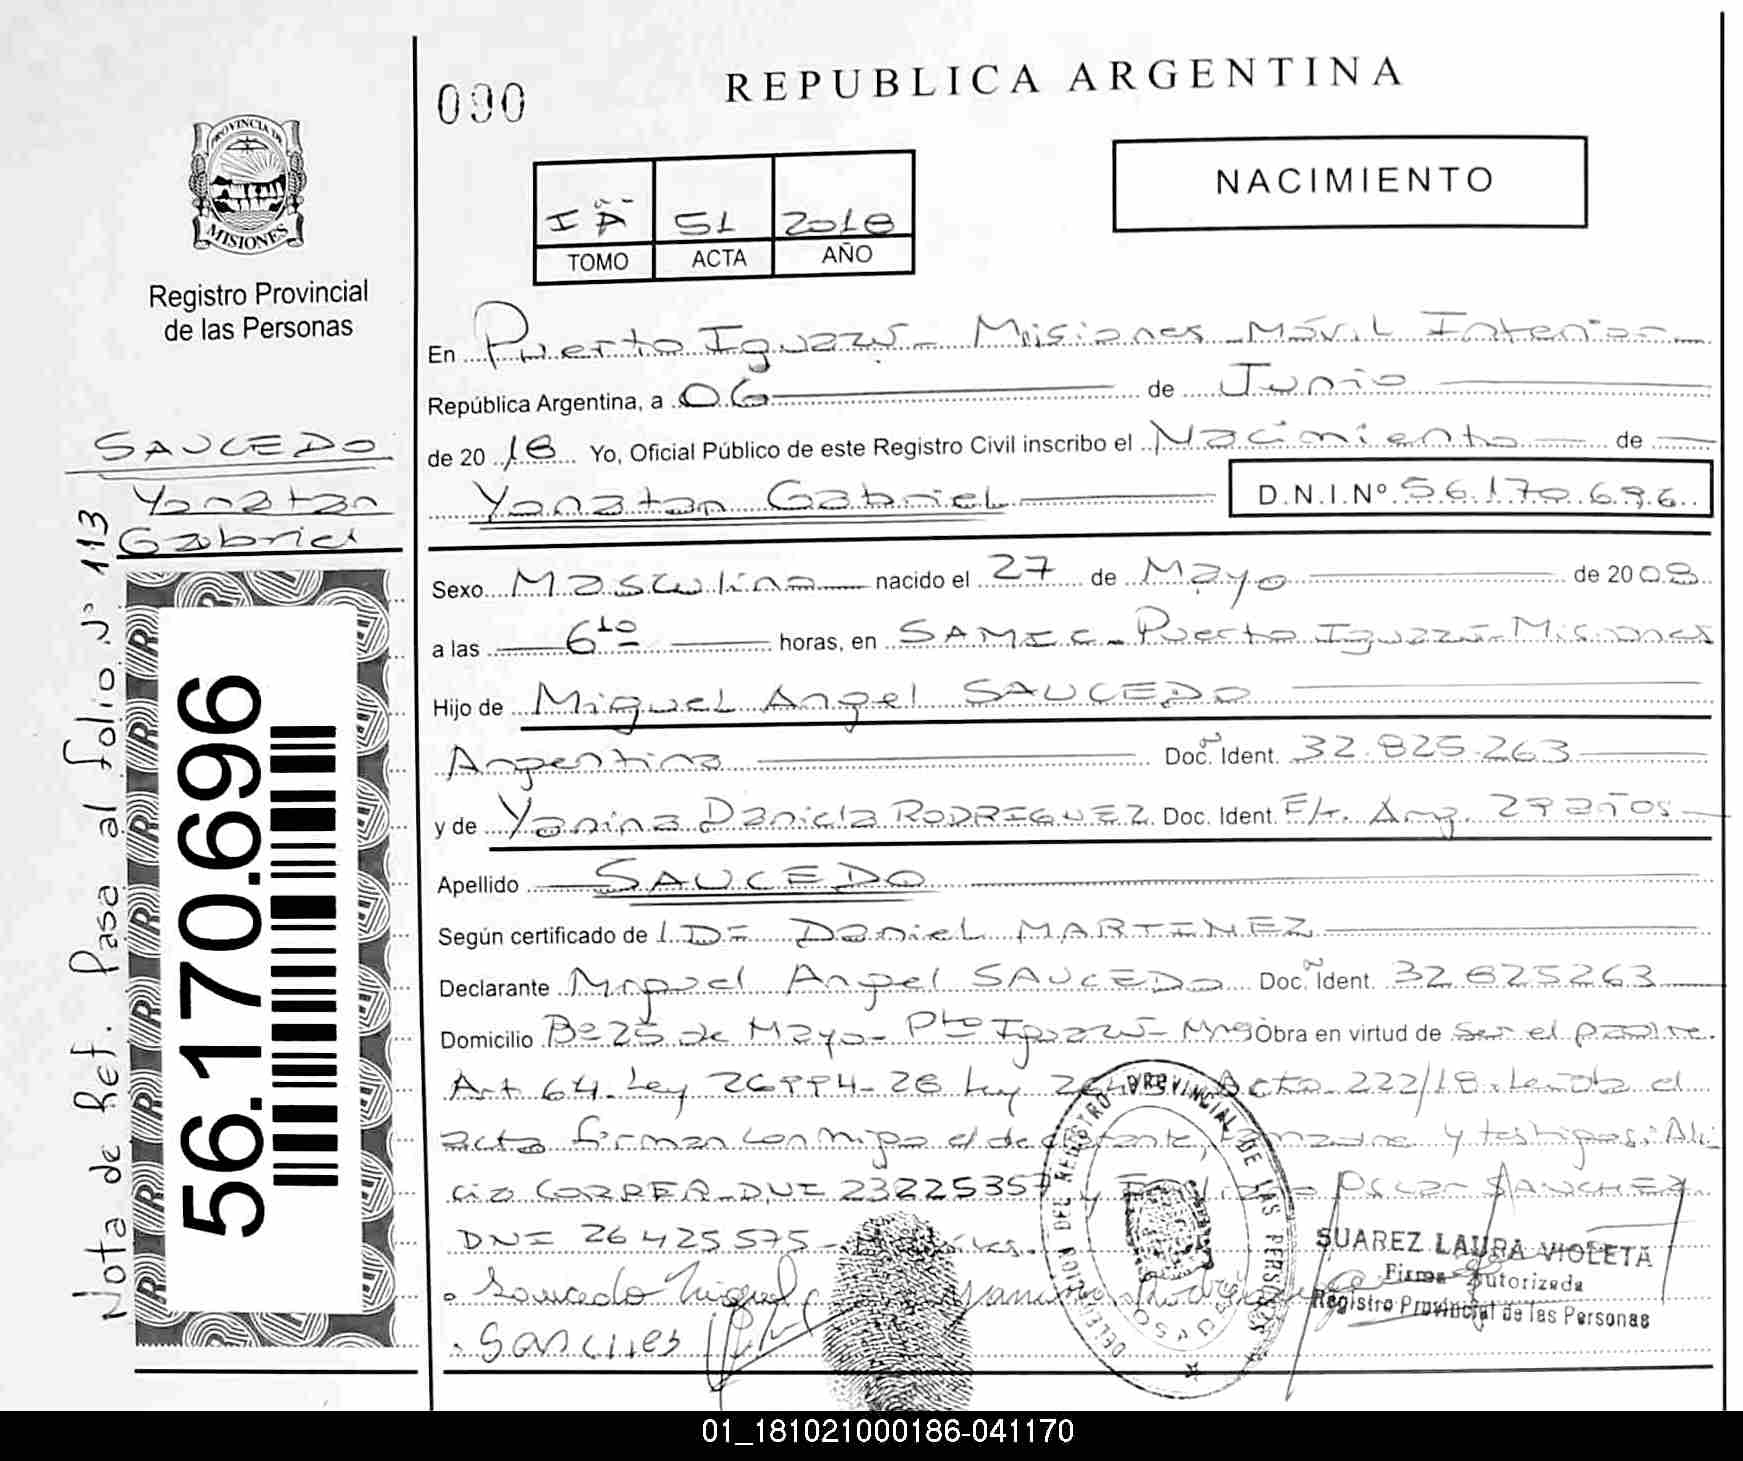 000
REPUBLICA ARGENTINA
NACIMIENTO
I "A" 51 2018
TOMO ACTA AÑO
PROVINCIA DE
MISIONES
Registro Provincial
de las Personas
SAUCEDO
Yonatan
Gabriel
Nota de Ref. Pasa al folio Nº 113
56.170.696
En Puerto Iguazú - Misiones - Móvil Interior
República Argentina, a 06 de Junio
de 2018 Yo, Oficial Público de este Registro Civil inscribo el Nacimiento de
Yonatan Gabriel D.N.I.Nº 56.170.696
Sexo Masculino nacido el 27 de Mayo de 2008
a las 6 10 horas, en SAMIC - Puerto Iguazú - Misiones
Hijo de Miguel Angel SAUCEDO
Argentino Doc. Ident. 32.825.263
y de Yanina Daniela RODRIGUEZ Doc. Ident. F/t. Arg. 29 años
Apellido SAUCEDO
Según certificado de IDI Daniel MARTINEZ
Declarante Miguel Angel SAUCEDO Doc. Ident. 32825263
Domicilio Bº 25 de Mayo - Pto Iguazú - Mnes Obra en virtud de ser el padre.
Art 64. Ley 26994 - 28 Ley Acta 222/18. Leída el
acta firman conmigo el declarante, y testigos: Ali
cia CORREA DNI 23225357 y Oscar SANCHEZ
DNI 26425575
Saucedo Miguel
Sanches
DELEGACION DEL REGISTRO PROVINCIAL DE LAS PERSONAS
SUAREZ LAURA VIOLETA
Firma Autorizada
Registro Provincial de las Personas
01_181021000186-041170